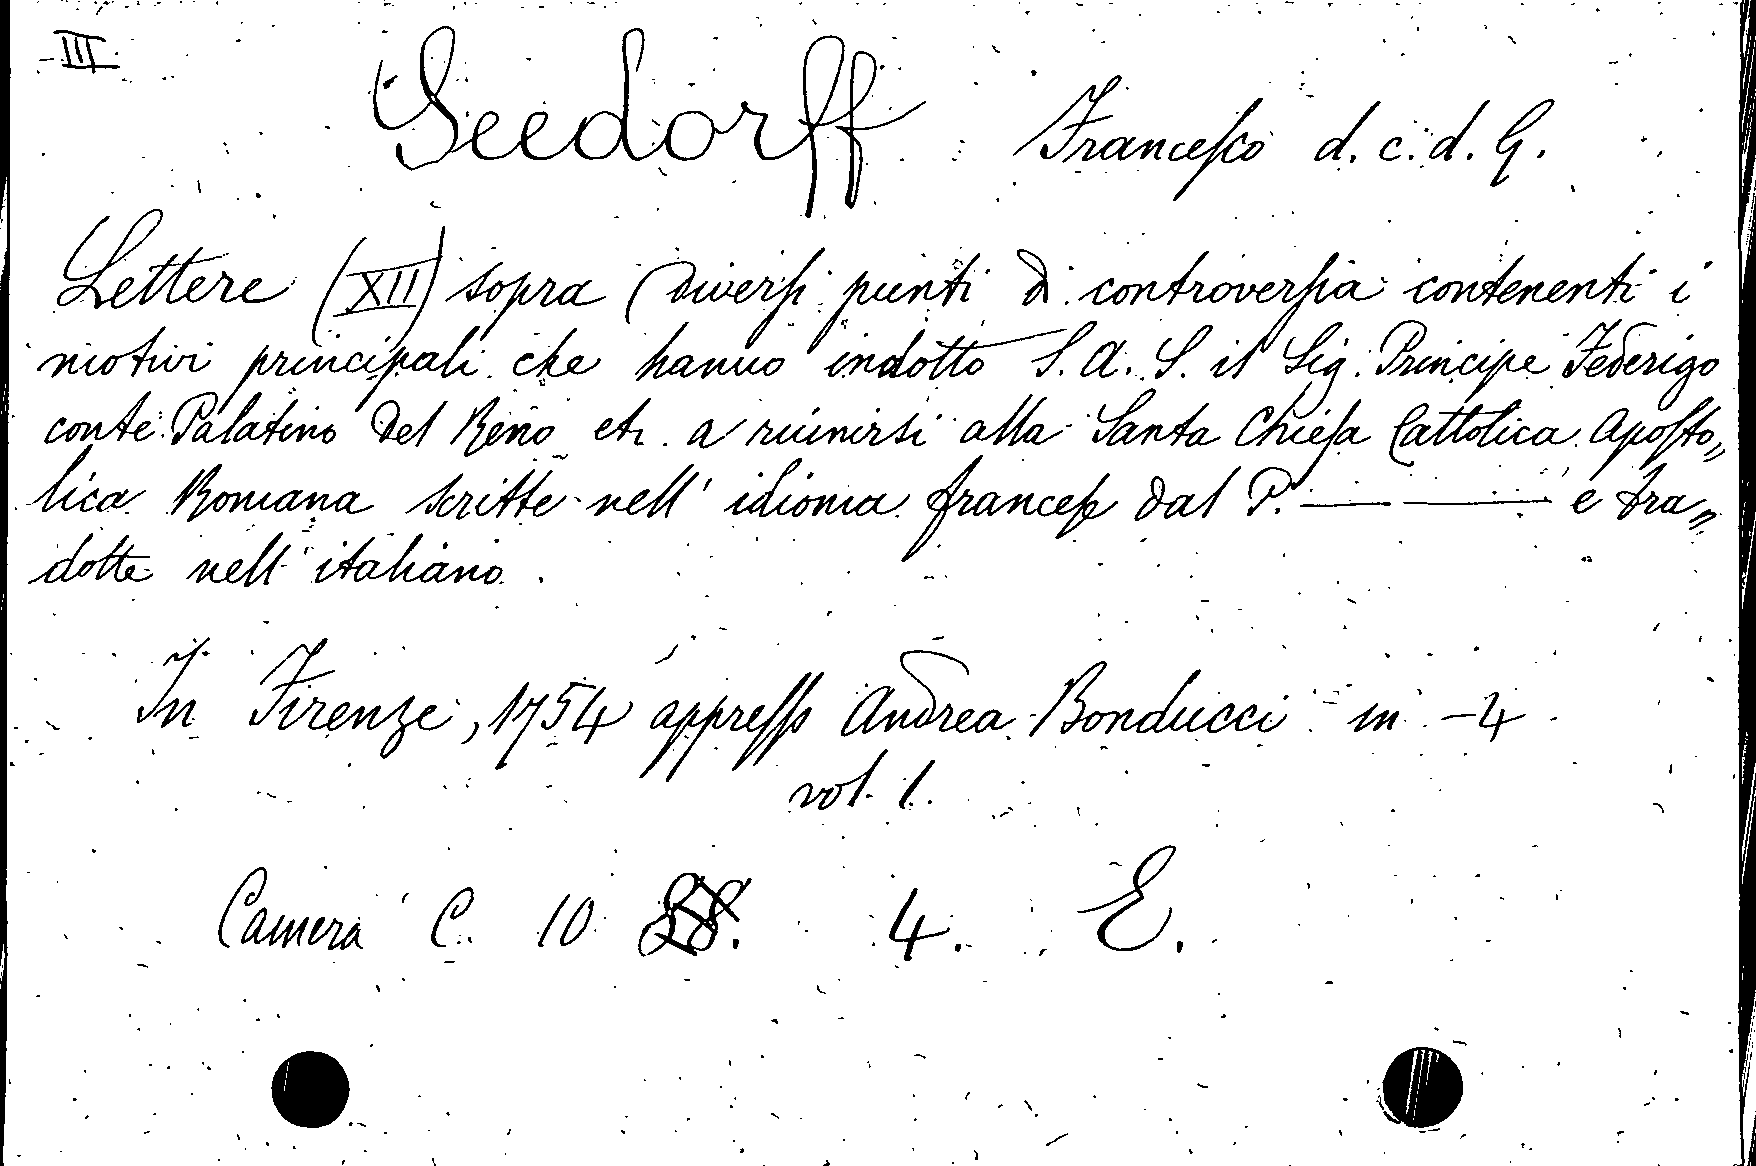 III
Seedorff Francesco d. c. d. G.
Lettere (XII) sopra diversi punti di controversia contenenti i
motivi principali che hanno indotto S. A. S. il Sig. Principe Federigo
conte Palatino del Reno etc. a riunirsi alla Santa Chiesa Cattolica Aposto„
lica Romana scritte nell' idioma francese dal P. — — e tra„
dotte nell' italiano.
In Firenze, 1754 appresso Andrea Bonducci in -4
vol. 1.
Camera C. 10 4. E.